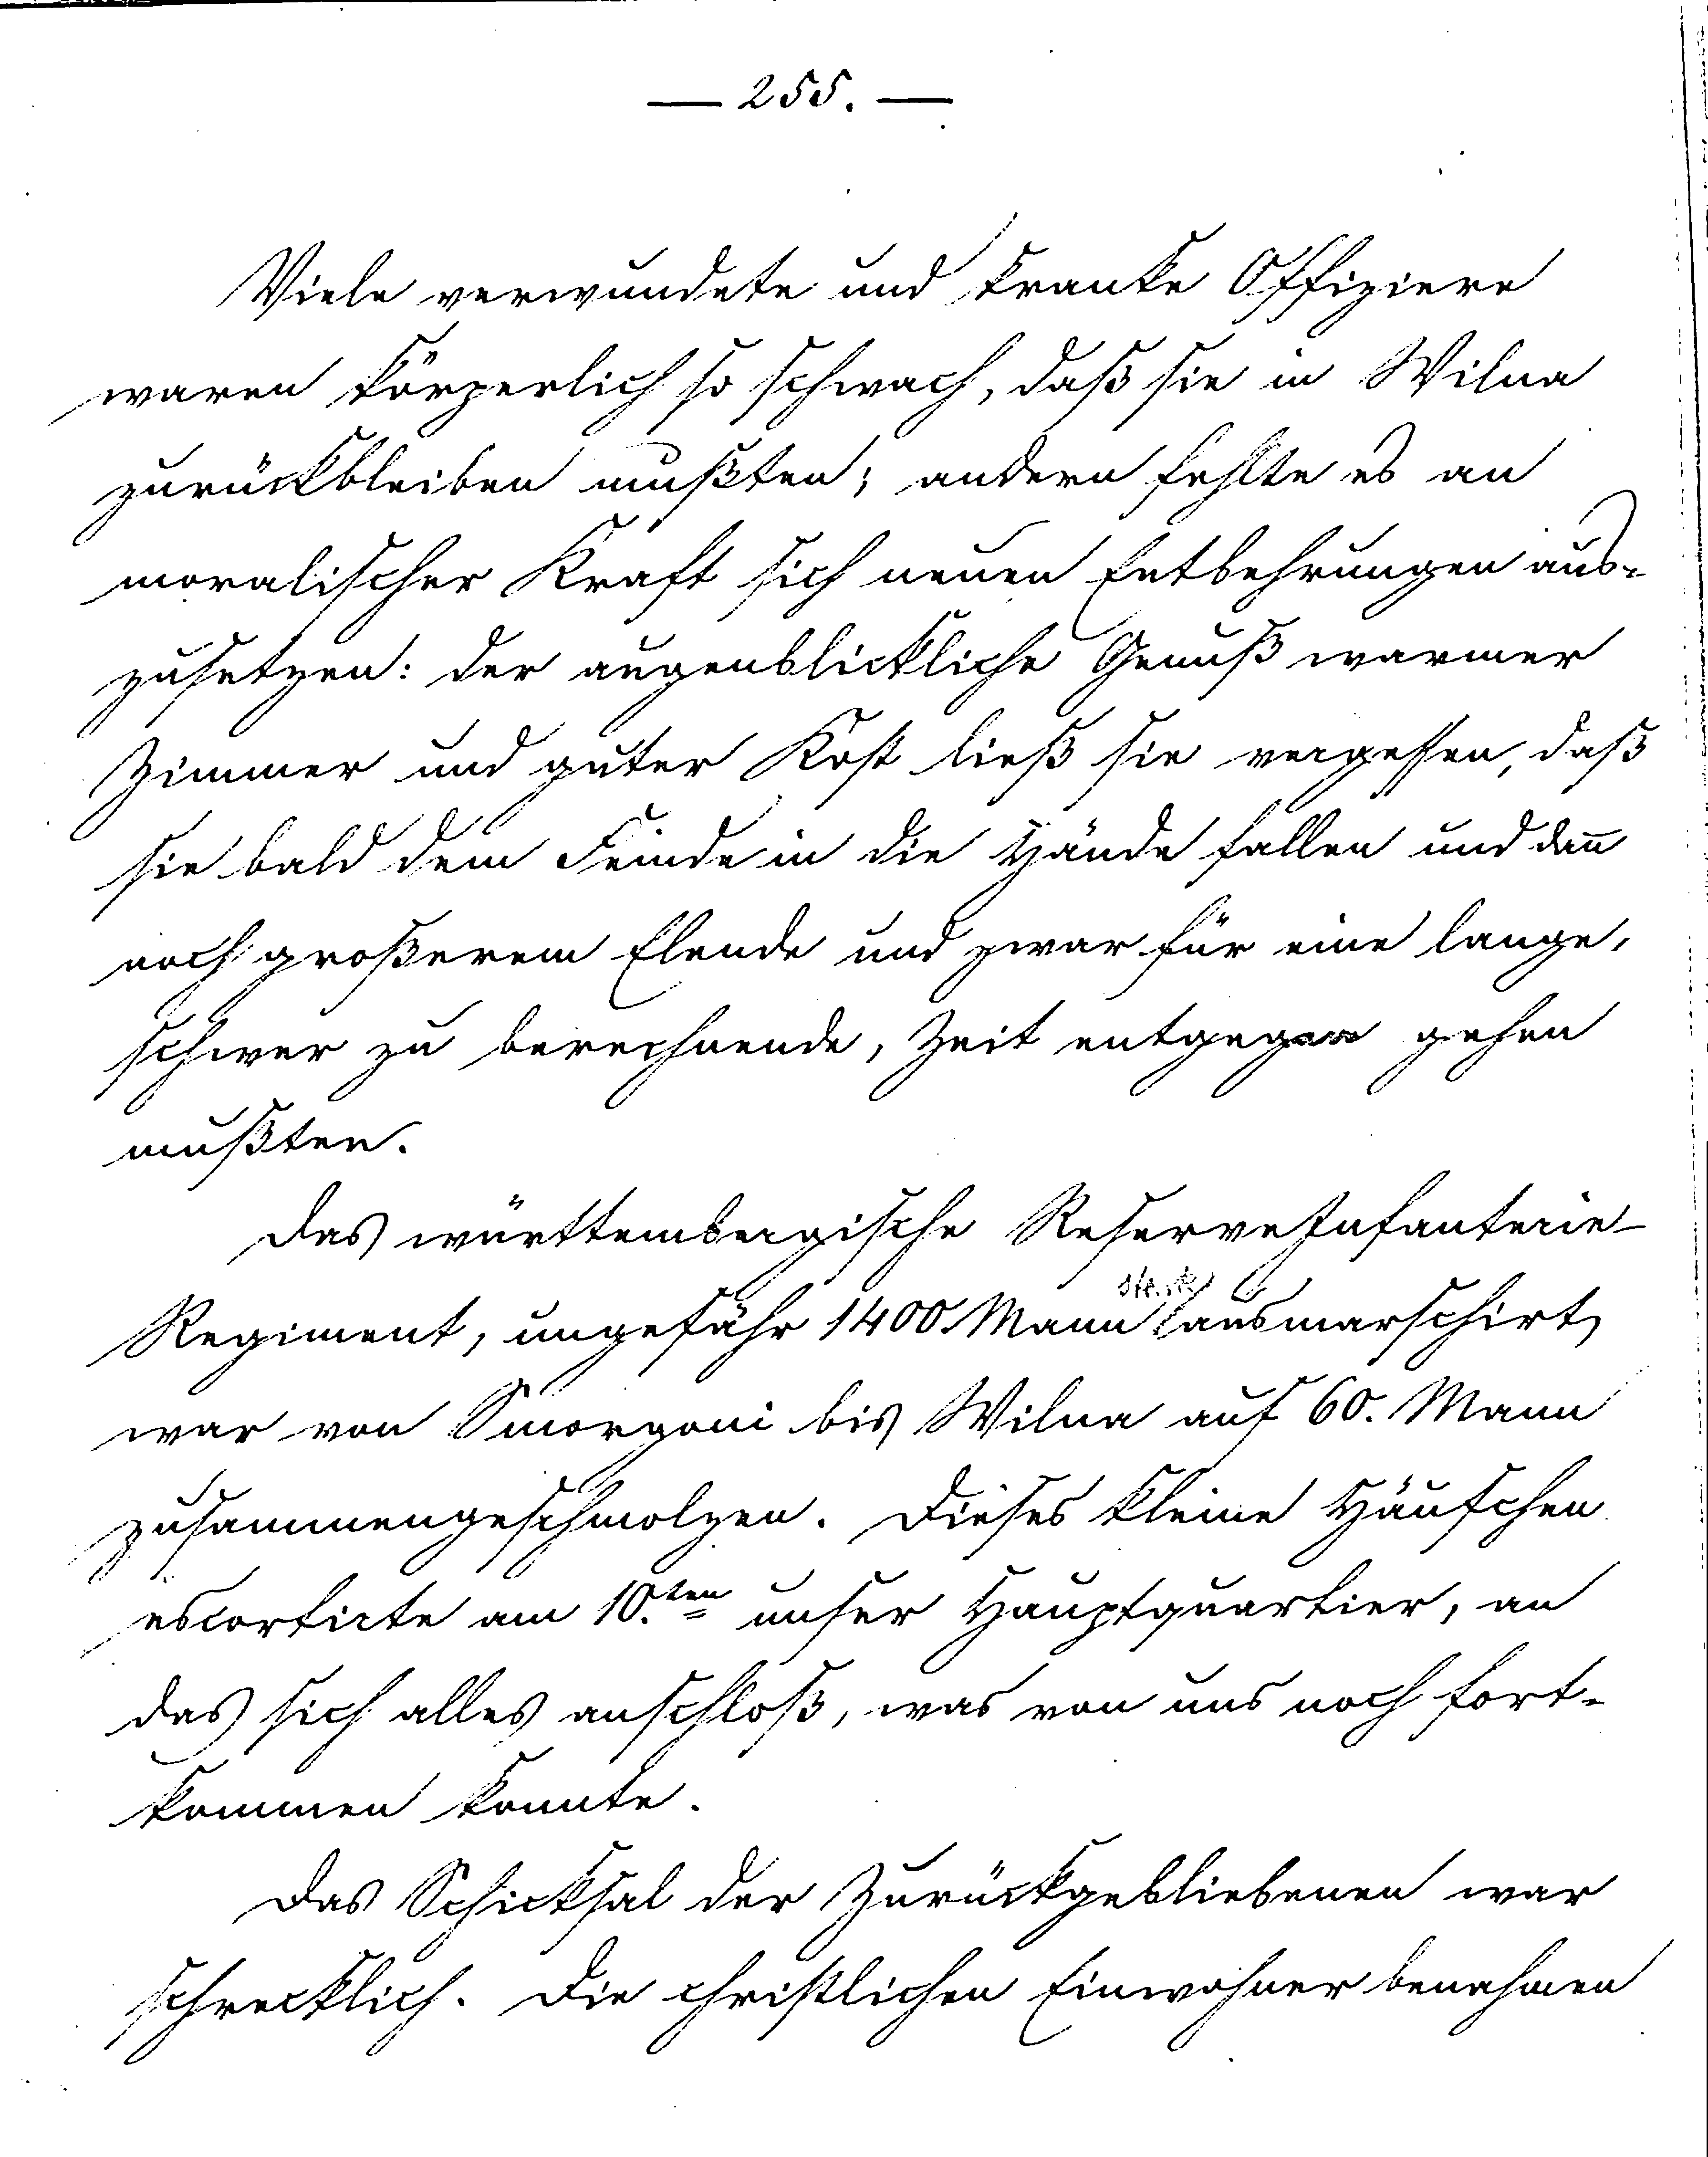 — 255. —
Viele verwundete und kranke Offiziere
waren körperlich so schwach, daß sie in Wilna
zurückbleiben mußten; andern fehlte es an
moralischer Kraft sich neuen Entbehrungen aus-
zusetzen: der augenblickliche Genuß warmer
Zimmer und guter Kost ließ sie vergessen, daß
sie bald dem Feinde in die Hände fallen und dan̄
noch großerem Elende und zwar für eine lange,
schwer zu berechnende, Zeit entgegen gehen
mußten.
Das württembergische Reserve Infanterie-
Regiment, ungefähr 1400 Mann stark ausmarschirt,
war von Smorgoni bis Wilna auf 60. Mann
zusammengeschmolzen. Dieses kleine Häufchen
escortirte am 10.ten unser Hauptquartier, an
das sich alles anschloß, was von uns noch fort-
kommen konnte.
Das Schicksal der Zurückgebliebenen war
schrecklich. Die christlichen Einwohner benahmen